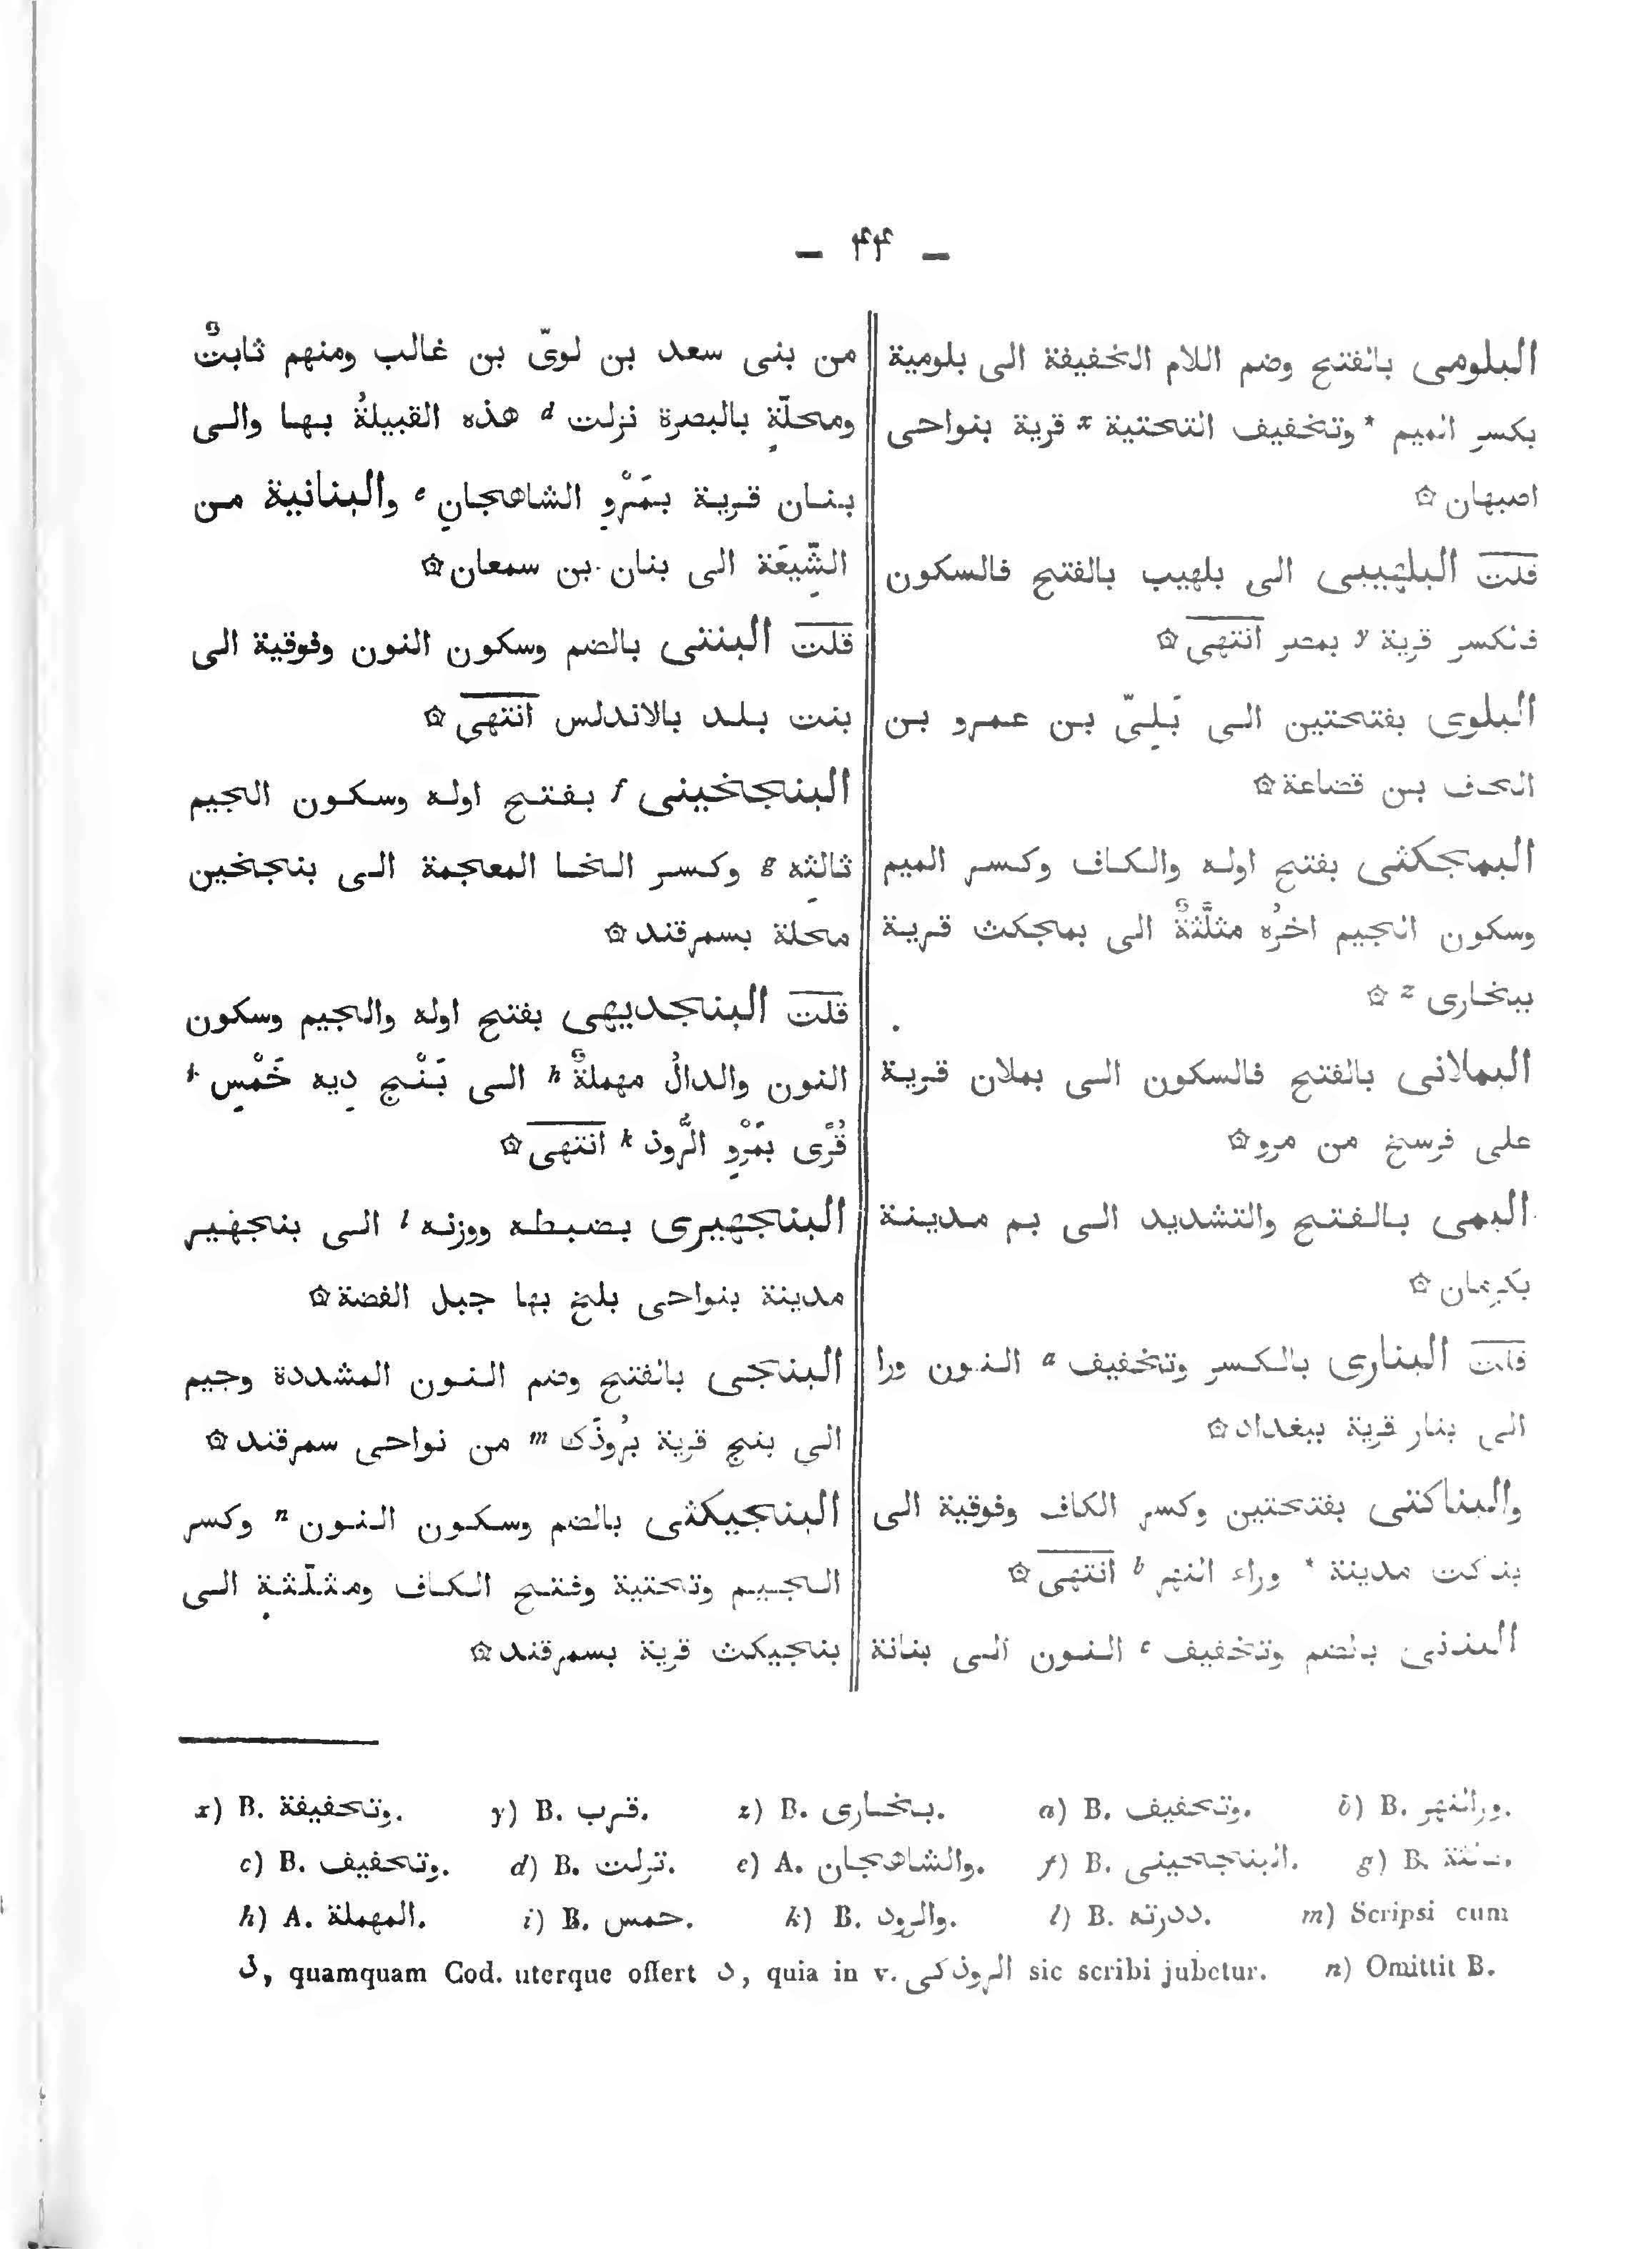 — ۴۴ —
البلومى بالفتح وضم اللام الخفيفة الى بلومية
بكسر الميم * وتخفيف التحتية x قرية بنواحى
اصبهان ۞
قلت البلهيبى الى بلهيب بالفتح فالسكون
فالكسر قرية y بمصر انتهى ۞
البلوى بفتحتين الى بَلِىّ بن عمرو بن
الحاف بن قضاعة ۞
البمجكثى بفتح اوله والكاف وكسر الميم
وسكون الجيم اخرُه مثلَّثةٌ الى بمجكث قرية
ببخارى z ۞
البملانى بالفتح فالسكون الى بملان قرية
على فرسخ من مرو ۞
البمى بالفتح والتشديد الى بم مدينة
بكرمان ۞
قلت البنارى بالكسر وتخفيف a النون ورا
الى بنار قرية ببغداد ۞
والبناكتى بفتحتين وكسر الكاف وفوقية الى
بناكت مدينة * وراء النهر b انتهى ۞
البنانى بالضم وتخفيف c النون الى بنانة
من بنى سعد بن لوىّ بن غالب ومنهم ثابتٌ
ومحلّةٍ بالبصرة نزلت d هذه القبيلةُ بها والى
بنان قرية بمَرْوِ الشاهجانِ e والبنانية من
الشِّيعَة الى بنان بن سمعان ۞
قلت البنتى بالضم وسكون النون وفوقية الى
بنت بلد بالاندلس انتهى ۞
البنجخينى f بفتح اوله وسكون الجيم
ثالثِه g وكسر الخا المعجمة الى بنجخين
محلة بسمرقند ۞
قلت البنجديهى بفتح اوله والجيم وسكون
النون والدالُ مهملةٌ h الى بَنْج دِيه خَمْسِ i
قُرًى بمَرْوِ الرُّوذ k انتهى ۞
البنجهيرى بضبطه ووزنه l الى بنجهير
مدينة بنواحى بلخ بها جبل الفضة ۞
البنجى بالفتح وضم النون المشددة وجيم
الى بنج قرية برُوذَك m من نواحى سمرقند ۞
البنجيكثى بالضم وسكون النون n وكسر
الجيم وتحتية وفتح الكاف ومثلّثةٍ الى
بنجيكث قرية بسمرقند ۞
x) B. وتحفيفة. y) B. قرب. z) B. بخارى. a) B. وتحفيف. b) B. ورالنهر.
c) B. وتحفيف. d) B. ترلت. e) A. والشاهجان. f) B. البنجحينى. g) B.
h) A. المهملة. i) B. حمس. k) B. والرود. l) B. m) Scripsi cum
ذ, quamquam Cod. uterque offert د, quia in v. الروذكى sic scribi jubetur. n) Omittit B.